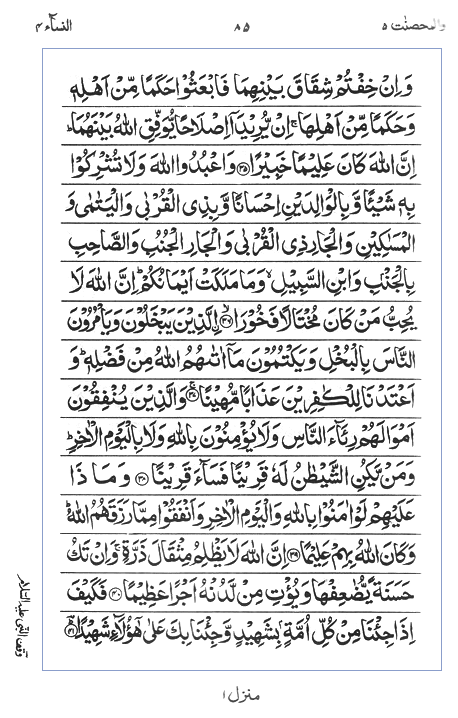 والمحصنٰت ٥ ٨٥ النسآء ٤
وَاِنْ خِفْتُمْ شِقَاقَ بَيْنِهِمَا فَابْعَثُوْا حَكَمًا مِّنْ اَهْلِهٖ
وَحَكَمًا مِّنْ اَهْلِهَا ۚ اِنْ يُّرِيْدَاۤ اِصْلَاحًا يُّوَفِّقِ اللّٰهُ بَيْنَهُمَا ؕ
اِنَّ اللّٰهَ كَانَ عَلِيْمًا خَبِيْرًا ﴿٣٥﴾ وَاعْبُدُوا اللّٰهَ وَلَا تُشْرِكُوْا
بِهٖ شَيْـًٔا وَّبِالْوَالِدَيْنِ اِحْسَانًا وَّبِذِى الْقُرْبٰى وَالْيَتٰمٰى وَ
الْمَسٰكِيْنِ وَالْجَارِ ذِى الْقُرْبٰى وَالْجَارِ الْجُنُبِ وَالصَّاحِبِ
بِالْجَنْۢبِ وَابْنِ السَّبِيْلِ ۙ وَمَا مَلَكَتْ اَيْمَانُكُمْ ؕ اِنَّ اللّٰهَ لَا
يُحِبُّ مَنْ كَانَ مُخْتَالًا فَخُوْرًا ﴿٣٦﴾ الَّذِيْنَ يَبْخَلُوْنَ وَيَاْمُرُوْنَ
النَّاسَ بِالْبُخْلِ وَيَكْتُمُوْنَ مَاۤ اٰتٰٮهُمُ اللّٰهُ مِنْ فَضْلِهٖ ؕ وَ
اَعْتَدْنَا لِلْكٰفِرِيْنَ عَذَابًا مُّهِيْنًا ﴿٣٧﴾ وَالَّذِيْنَ يُنْفِقُوْنَ
اَمْوَالَهُمْ رِئَآءَ النَّاسِ وَلَا يُؤْمِنُوْنَ بِاللّٰهِ وَلَا بِالْيَوْمِ الْاٰخِرِ ؕ
وَمَنْ يَّكُنِ الشَّيْطٰنُ لَهٗ قَرِيْنًا فَسَآءَ قَرِيْنًا ﴿٣٨﴾ وَمَا ذَا
عَلَيْهِمْ لَوْ اٰمَنُوْا بِاللّٰهِ وَالْيَوْمِ الْاٰخِرِ وَاَنْفَقُوْا مِمَّا رَزَقَهُمُ اللّٰهُ ؕ
وَكَانَ اللّٰهُ بِهِمْ عَلِيْمًا ﴿٣٩﴾ اِنَّ اللّٰهَ لَا يَظْلِمُ مِثْقَالَ ذَرَّةٍ ۚ وَاِنْ تَكُ
حَسَنَةً يُّضٰعِفْهَا وَيُؤْتِ مِنْ لَّدُنْهُ اَجْرًا عَظِيْمًا ﴿٤٠﴾ فَكَيْفَ
اِذَا جِئْنَا مِنْ كُلِّ اُمَّةٍۭ بِشَهِيْدٍ وَّجِئْنَا بِكَ عَلٰى هٰٓؤُلَآءِ شَهِيْدًا ﴿٤١﴾
وقف النبى عليه السلام
منزل ١